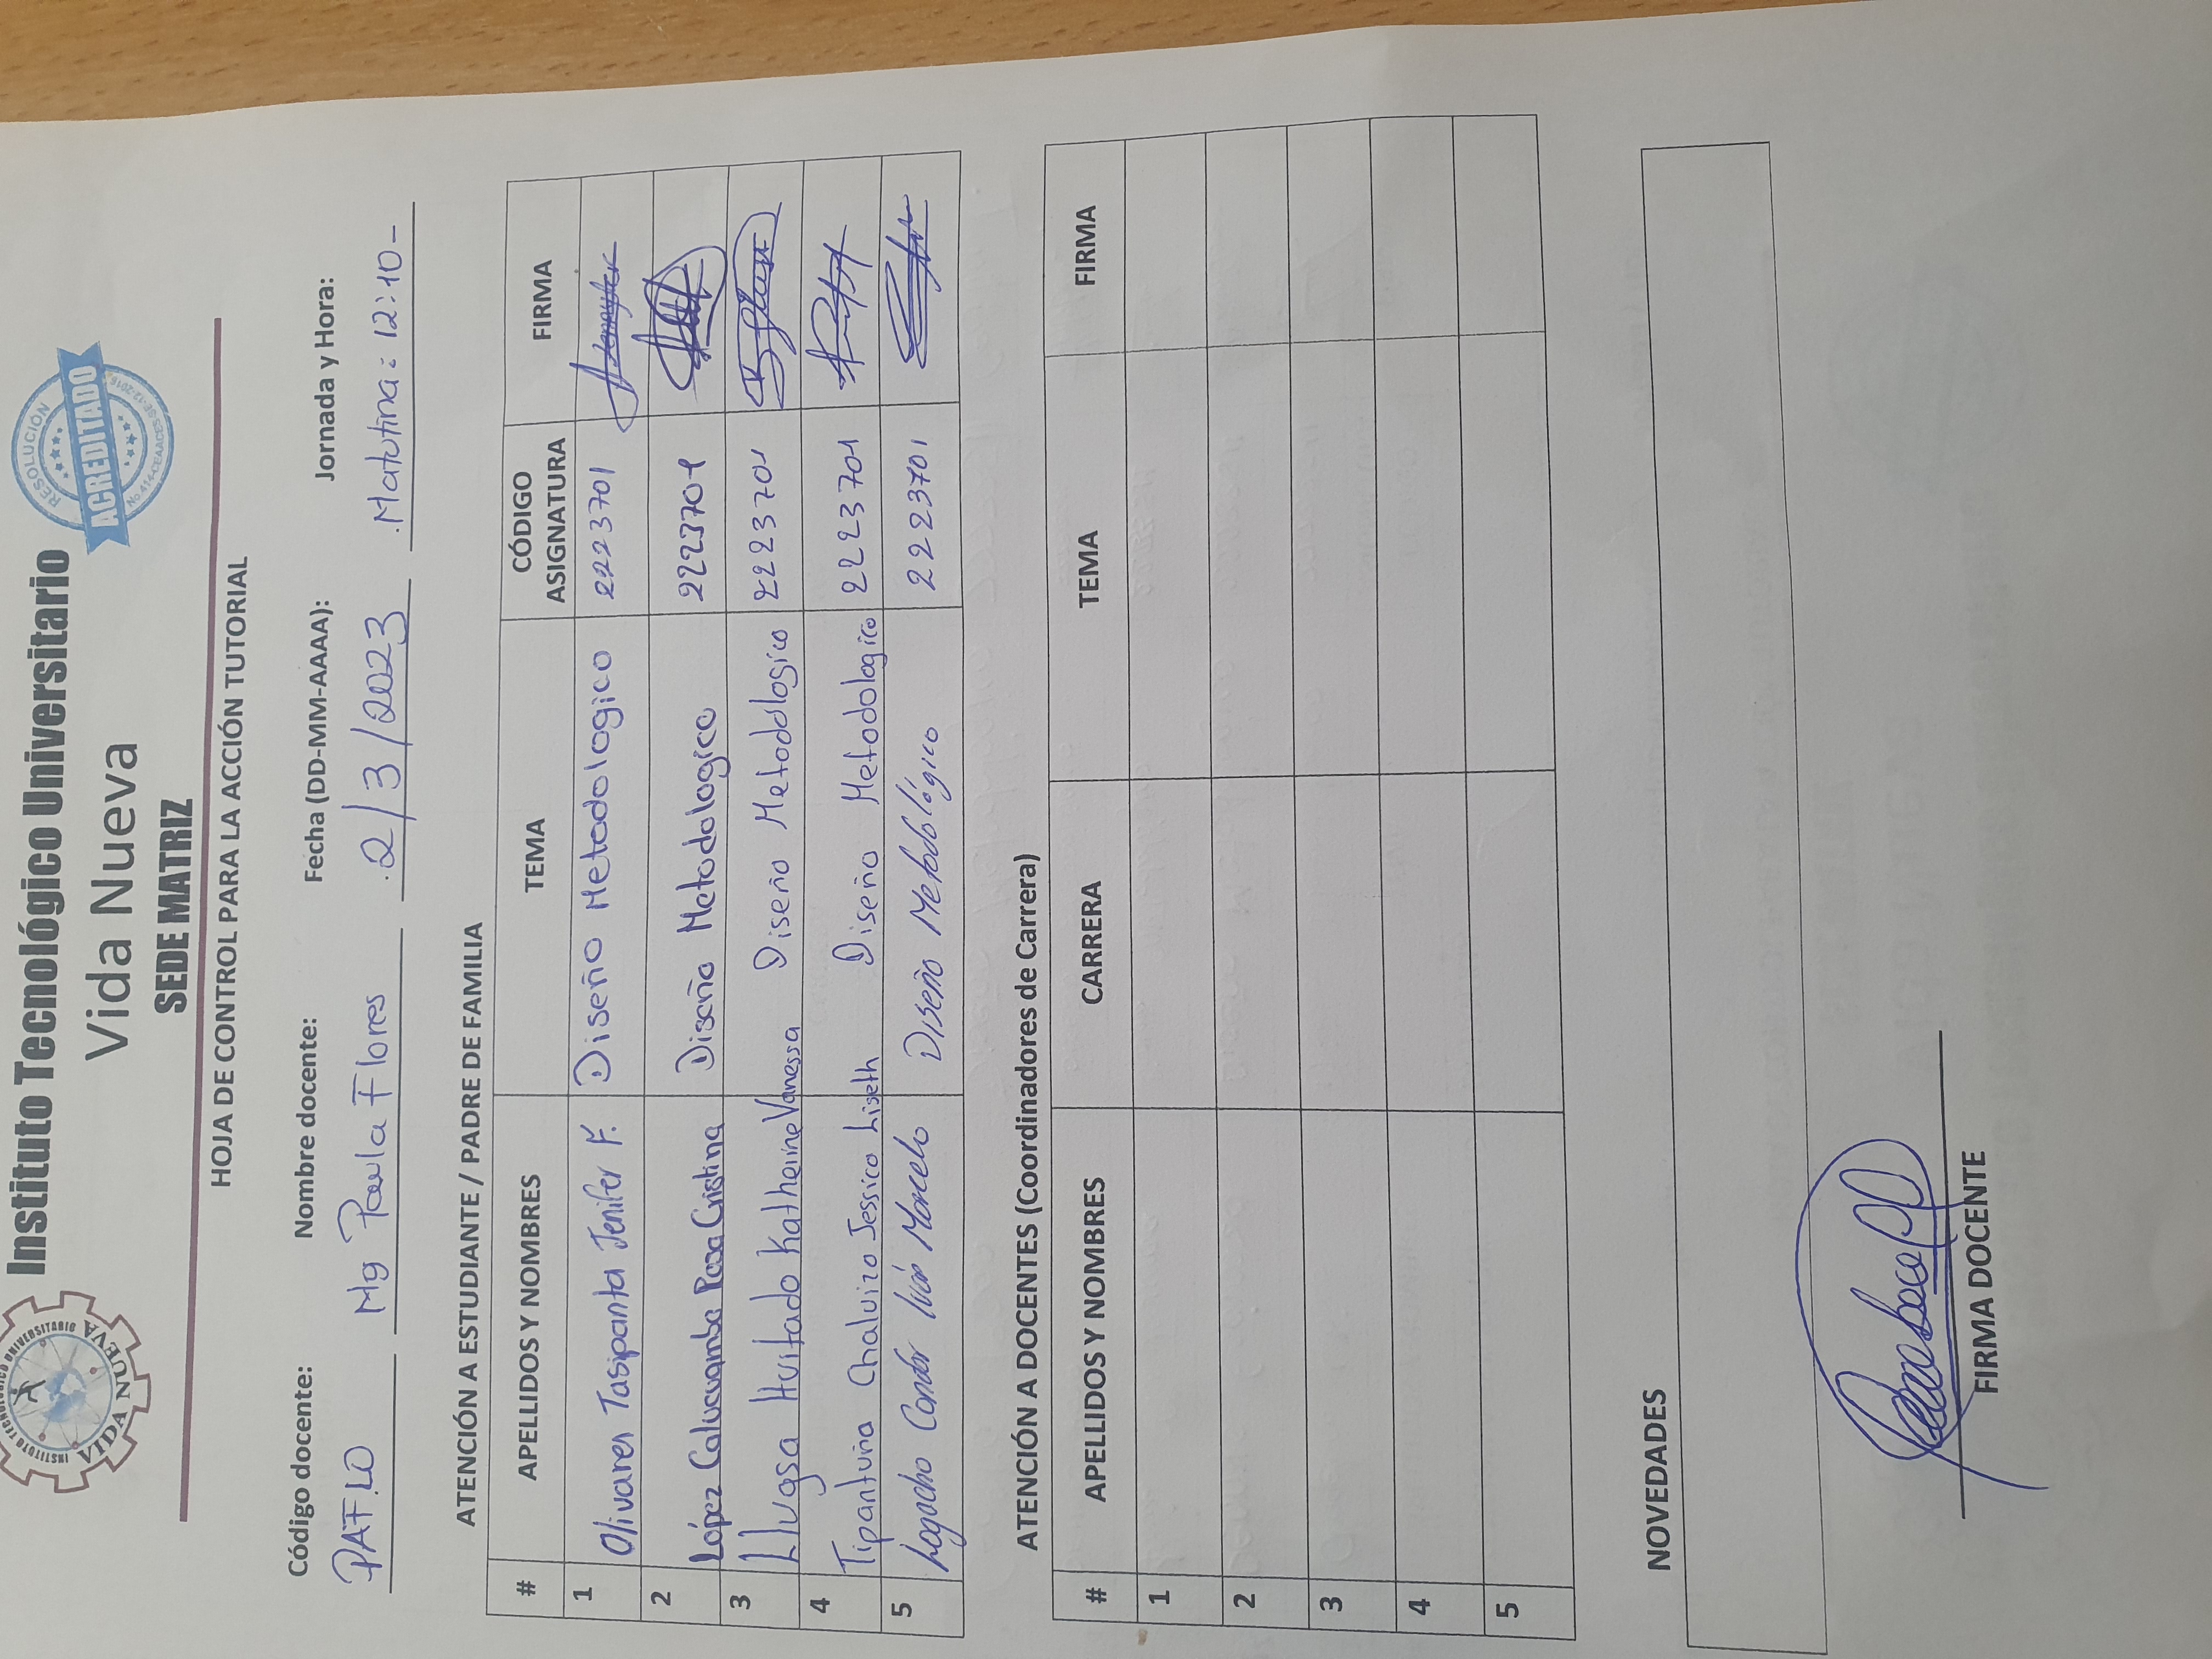 INSTITUTO TECNOLÓGICO UNIVERSITARIO
VIDA NUEVA
Instituto Tecnológico Universitario
Vida Nueva
SEDE MATRIZ
RESOLUCIÓN
ACREDITADO
HOJA DE CONTROL PARA LA ACCIÓN TUTORIAL
Código docente: Nombre docente: Fecha (DD-MM-AAAA): Jornada y Hora:
PAFLO Mg Paula Flores 2/3/2023 Matutina: 12:10-
ATENCIÓN A ESTUDIANTE / PADRE DE FAMILIA
# APELLIDOS Y NOMBRES TEMA CÓDIGO ASIGNATURA FIRMA
1 Olivares Tasipanta Jenifer F. Diseño Metodologico 2223701
2 López Calucuamba Rosa Cristina Diseño Metodologico 2223701
3 Llugsa Hurtado Katherine Vanessa Diseño Metodologico 2223701
4 Tipantuña Chaluiza Jessica Liseth Diseño Metodologico 2223701
5 Logacho Condor Iván Marcelo Diseño Metodológico 2223701
ATENCIÓN A DOCENTES (Coordinadores de Carrera)
# APELLIDOS Y NOMBRES CARRERA TEMA FIRMA
1
2
3
4
5
NOVEDADES
FIRMA DOCENTE